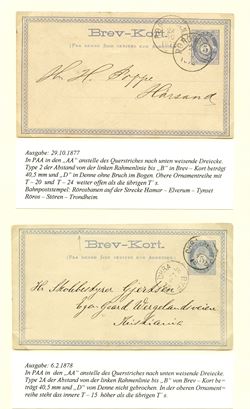 Brev-Kort.
(Paa denne Side skrives kun Adressen.)
Hr. H. Poppe
Harsand
Ausgabe: 29.10.1877
In PAA in den „AA" anstelle des Querstriches nach unten weisende Dreiecke.
Type 2 der Abstand von der linken Rahmenlinie bis „B" in Brev – Kort beträgt
40,5 mm und „D" in Denne ohne Bruch im Bogen. Obere Ornamentreihe mit
T – 20 und T – 24 weiter offen als die übrigen T´s.
Bahnpoststempel: Rörosbanen auf der Strecke Hamar – Elverum – Tynset
Röros – Stören – Trondheim.
Brev-Kort.
(Paa denne Side skrives kun Adressen.)
Hr. Skolebestyrer Gjertsen
Wergelandsveien
Kristiania
Ausgabe: 6.2.1878
In PAA in den „AA" anstelle des Querstriches nach unten weisende Dreiecke.
Type 2A der Abstand von der linken Rahmenlinie bis „B" von Brev – Kort be=
trägt 40,5 mm und „D" von Denne nicht gebrochen. In der oberen Ornament=
reihe steht das innere T – 15 höher als die übrigen T´s.